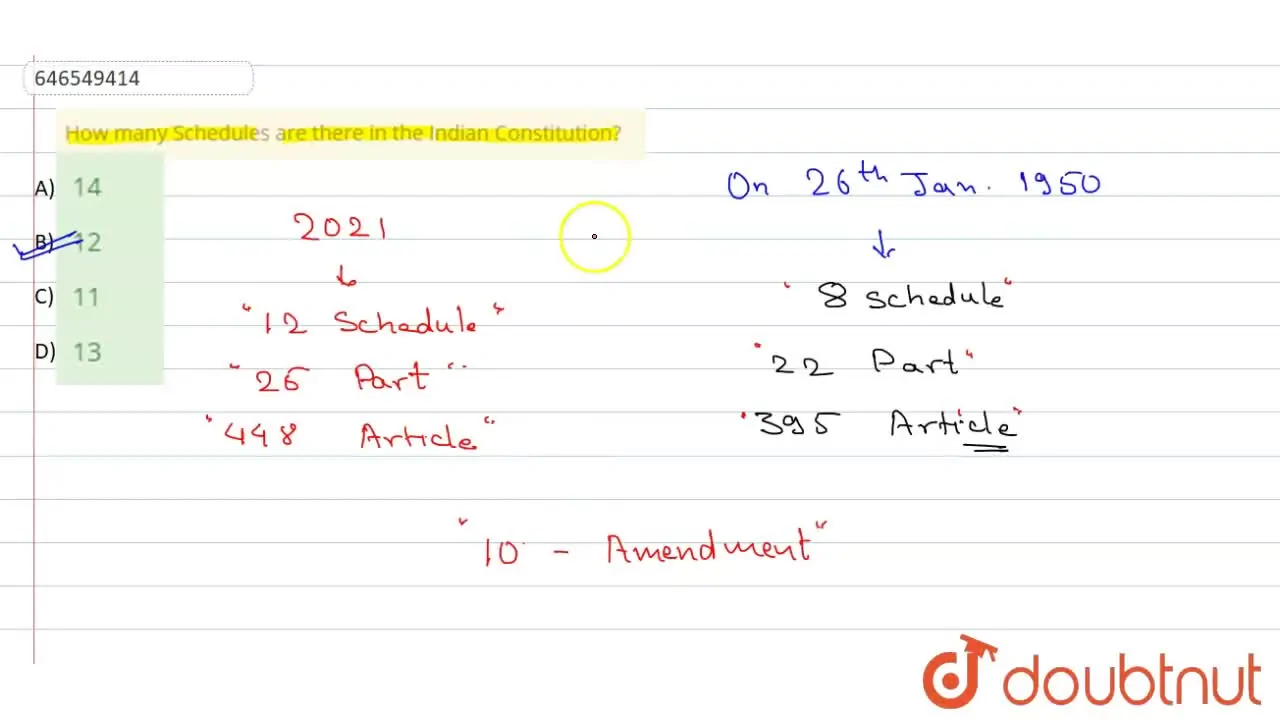 646549414
How many Schedules are there in the Indian Constitution?
A) 14
B) 12
C) 11
D) 13
2021
"12 Schedule"
"26 Part"
"448 Article"
On 26th Jan. 1950
"8 schedule"
"22 Part"
"395 Article"
"10 - Amendment"
doubtnut